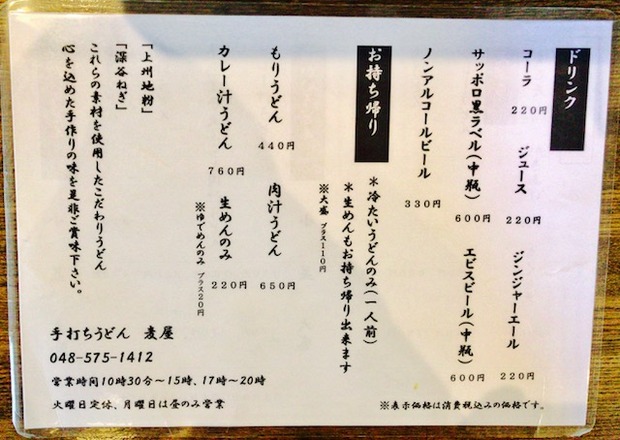 ドリンク
コーラ 220円
ジュース 220円
ジンジャーエール 220円
サッポロ黒ラベル(中瓶) 600円
エビスビール(中瓶) 600円
ノンアルコールビール 330円
お持ち帰り
＊冷たいうどんのみ(一人前)
＊生めんもお持ち帰り出来ます
※大盛 プラス110円
もりうどん 440円
肉汁うどん 650円
カレー汁うどん 760円
生めんのみ 220円
※ゆでめんのみ プラス20円
「上州地粉」
「深谷ねぎ」
これらの素材を使用したこだわりうどん
心を込めた手作りの味を是非ご賞味下さい。
手打ちうどん 麦屋
048-575-1412
営業時間10時30分～15時、17時～20時
火曜日定休、月曜日は昼のみ営業
※表示価格は消費税込みの価格です。